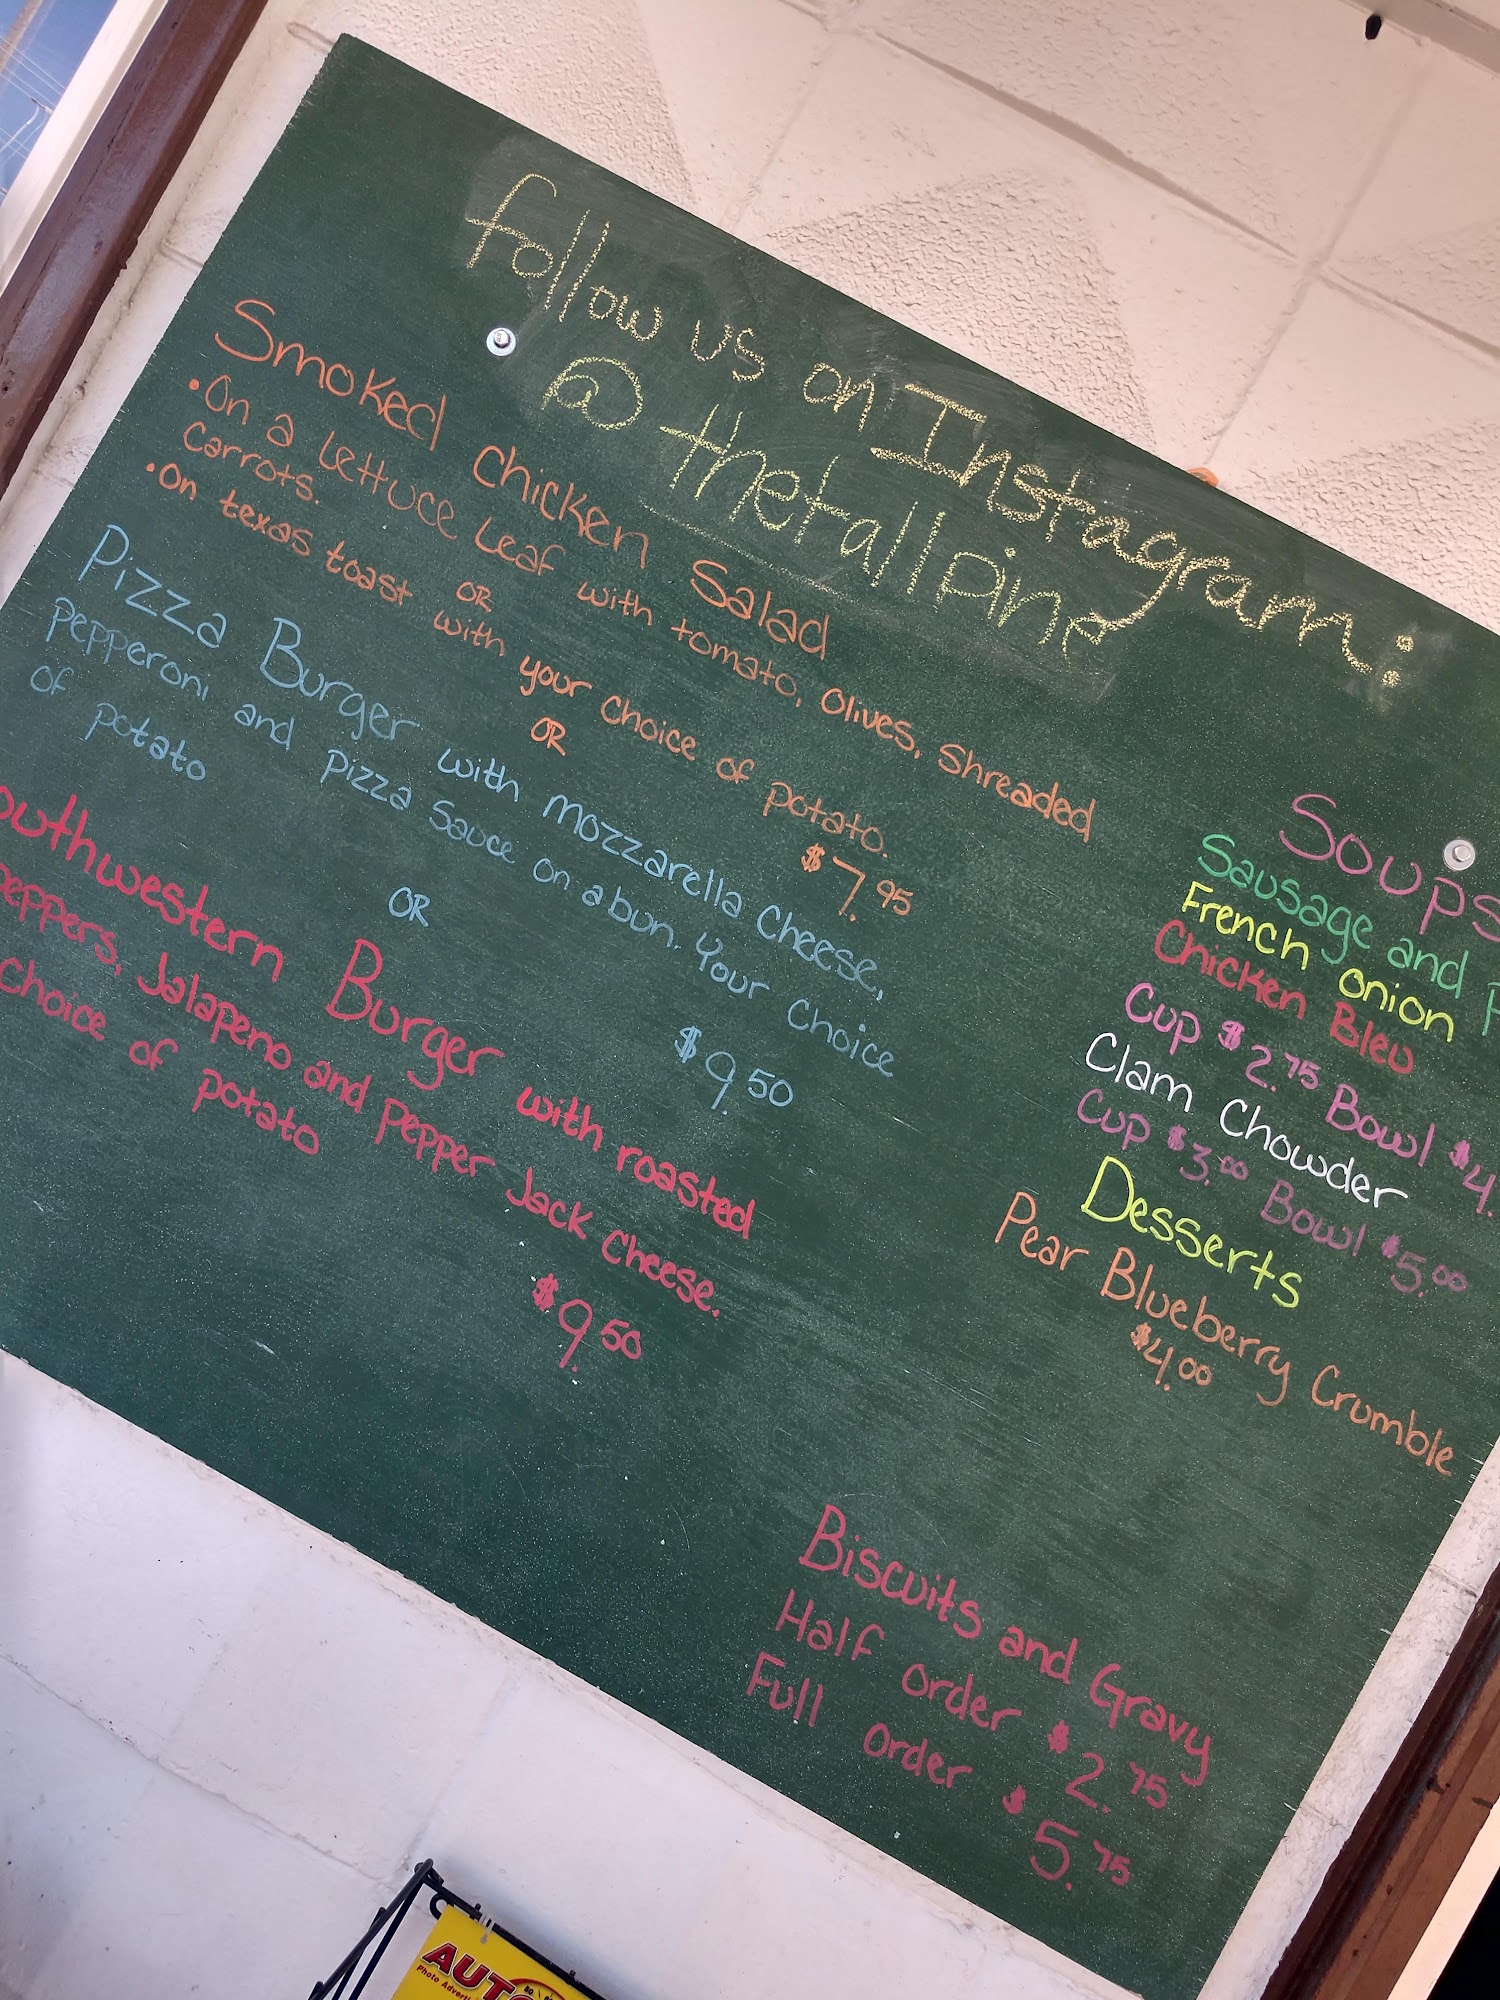 follow us on Instagram:
@thetallpine
Smoked Chicken Salad
•On a lettuce leaf with tomato, olives, shreaded
carrots.
OR
•On texas toast with your choice of potato.
$7.95
OR
Pizza Burger with mozzarella cheese,
pepperoni and pizza sauce on a bun. Your choice
of potato
$9.50
OR
outhwestern Burger with roasted
peppers, Jalapeno and pepper Jack cheese.
Choice of potato
$9.50
Soups
Sausage and
French onion
Chicken Bleu
Cup $2.75 Bowl $4.
Clam Chowder
Cup $3.00 Bowl $5.00
Desserts
Pear Blueberry Crumble
$4.00
Biscuits and Gravy
Half order $2.75
Full order $5.75
AUTO
Photo